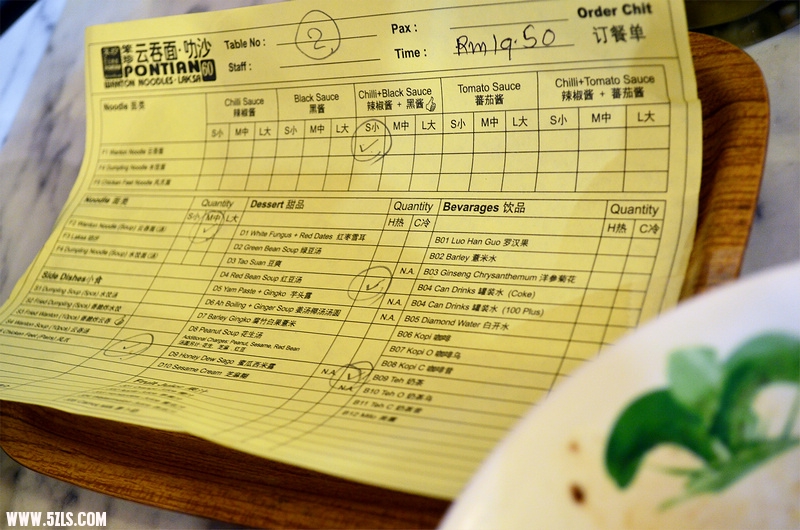 Order Chit
订餐单
笨珍 云吞面·叻沙
PONTIAN 60
WANTON NOODLES · LAKSA
Table No : 2
Pax :
Staff :
Time : RM 19.50
Noodle 面类
Chilli Sauce 辣椒酱
Black Sauce 黑酱
Chilli+Black Sauce 辣椒酱 + 黑酱
Tomato Sauce 蕃茄酱
Chilli+Tomato Sauce 辣椒酱 + 蕃茄酱
S小 M中 L大 S小 M中 L大 S小 M中 L大 S小 M中 L大 S小 M中 L大
F1 Wanton Noodle 云吞面
F4 Dumpling Noodle 水饺面
F5 Chicken Feet Noodle
Noodle 面类
Quantity
S小 M中 L大
F2 Wanton Noodle (Soup)
F3 Laksa 叻沙
F4 Dumpling Noodle (Soup)
Side Dishes 小食
S1 Dumpling Soup (5pcs) 水饺汤
S2 Fried Dumpling (5pcs)
S3 Fried Wanton (10pcs)
S4 Wanton Soup (10pcs) 云吞汤
Dessert 甜品
Quantity
H热 C冷
D1 White Fungus + Red Dates 红枣雪耳
D2 Green Bean Soup 绿豆汤
D3 Tao Suan 豆爽
N.A.
D4 Red Bean Soup 红豆汤
D5 Yam Paste + Gingko 芋头露
N.A.
D6 Ah Boiling + Ginger Soup 姜汤椰汤汤圆
N.A.
D7 Barley Gingko
D8 Peanut Soup 花生汤
Additional Charges: Peanut, Sesame, Red Bean
D9 Honey Dew Sago 蜜瓜西米露
N.A.
D10 Sesame Cream 芝麻糊
N.A.
Bevarages 饮品
Quantity
H热 C冷
B01 Luo Han Guo 罗汉果
B02 Barley 薏米水
B03 Ginseng Chrysanthemum 洋参菊花
B04 Can Drinks 罐装水 (Coke)
B04 Can Drinks 罐装水 (100 Plus)
B05 Diamond Water 白开水
B06 Kopi 咖啡
B07 Kopi O 咖啡乌
B08 Kopi C 咖啡昔
B09 Teh 奶茶
B10 Teh O 奶茶乌
B11 Teh C 奶茶昔
B12 Milo
WWW.5ZLS.COM